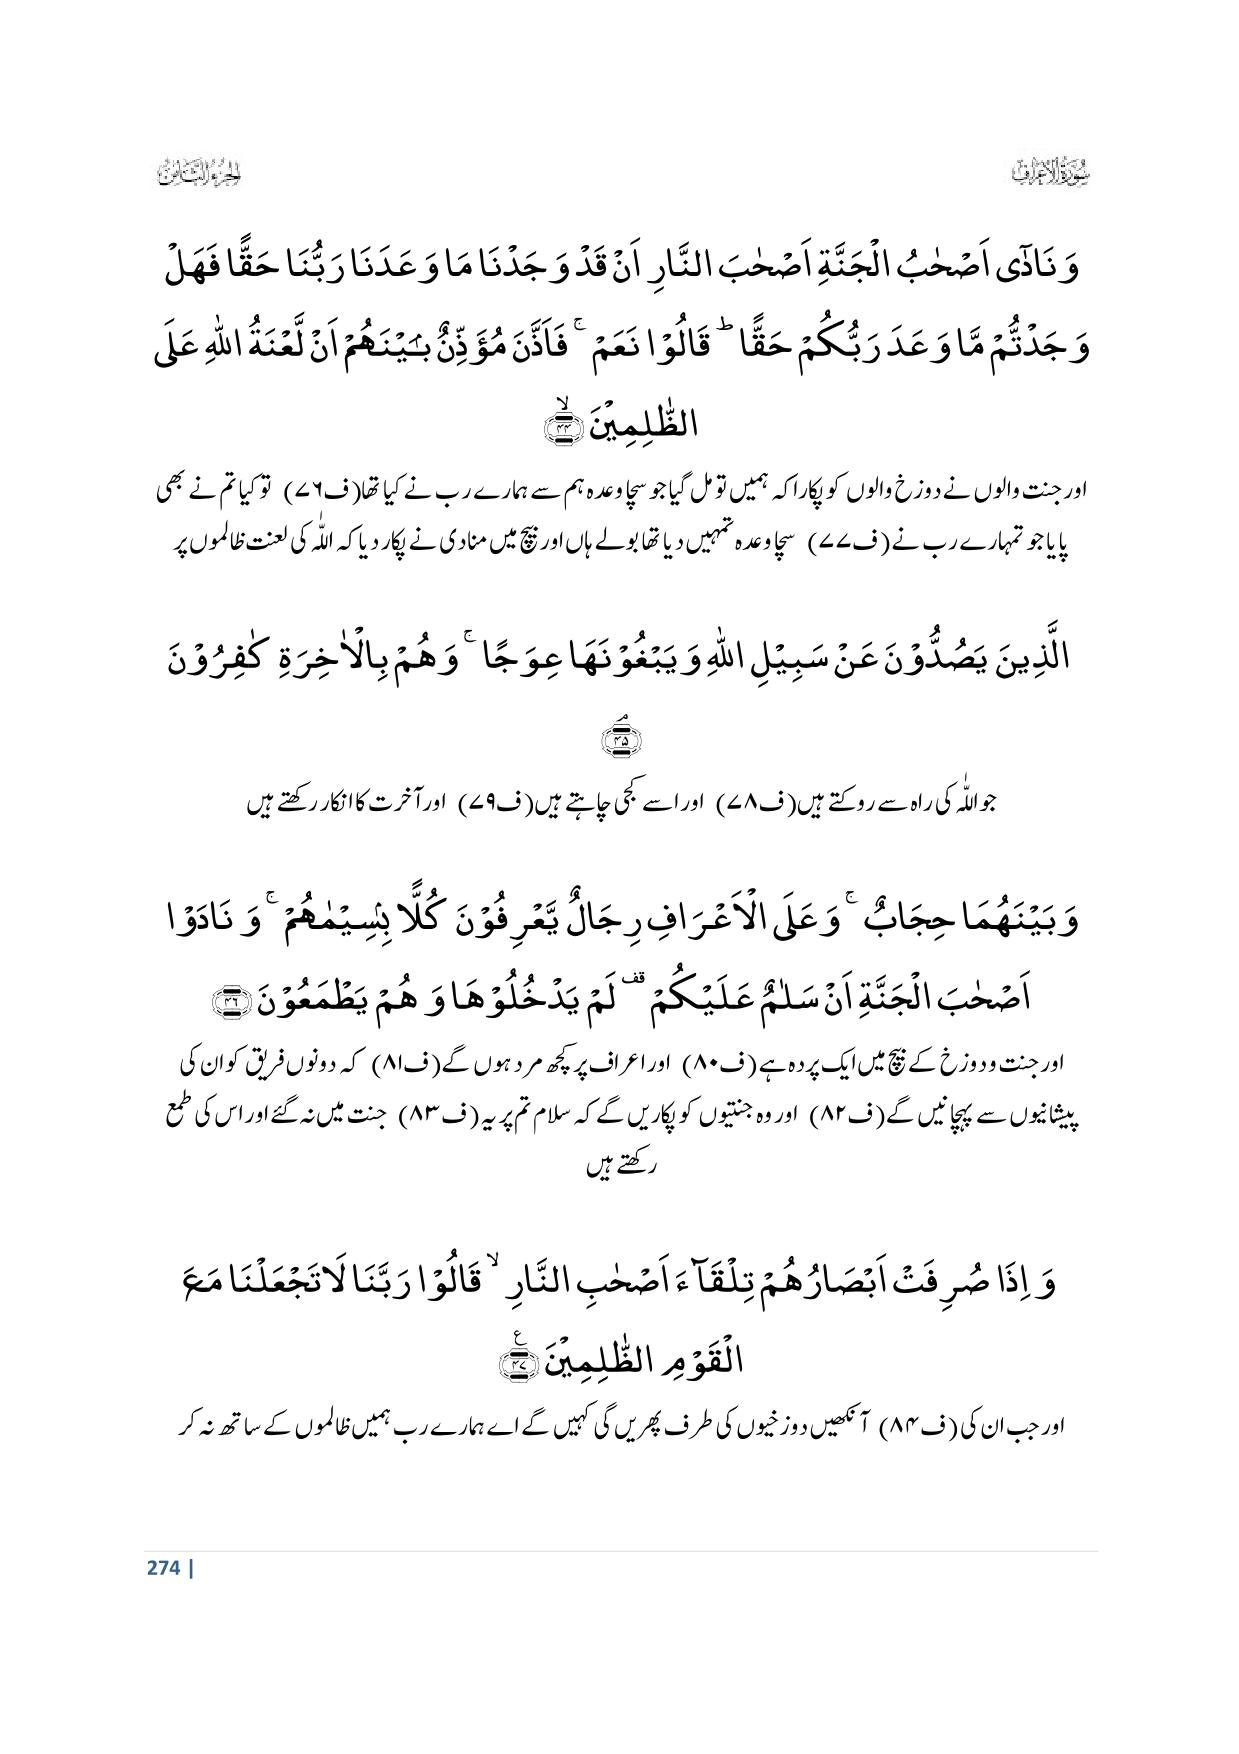 سُوْرَةُ الْاَعْرَاف
الجزء الثامن
وَ نَادٰۤی اَصْحٰبُ الْجَنَّةِ اَصْحٰبَ النَّارِ اَنْ قَدْ وَجَدْنَا مَا وَعَدَنَا رَبُّنَا حَقًّا فَهَلْ
وَجَدْتُّمْ مَّا وَعَدَ رَبُّكُمْ حَقًّا ؕ قَالُوْا نَعَمْ ۚ فَاَذَّنَ مُؤَذِّنٌۢ بَیْنَهُمْ اَنْ لَّعْنَةُ اللهِ عَلَی
الظّٰلِمِیْنَ ﴿ۙ۴۴﴾
اور جنت والوں نے دوزخ والوں کو پکارا کہ ہمیں تو مل گیا جو سچا وعدہ ہم سے ہمارے رب نے کیا تھا(ف۷۶) تو کیا تم نے بھی
پایا جو تمہارے رب نے (ف۷۷) سچا وعدہ تمہیں دیا تھا بولے ہاں اور بیچ میں منادی نے پکار دیا کہ اللّٰہ کی لعنت ظالموں پر
الَّذِیْنَ یَصُدُّوْنَ عَنْ سَبِیْلِ اللهِ وَ یَبْغُوْنَهَا عِوَجًا ۚ وَ هُمْ بِالْاٰخِرَةِ كٰفِرُوْنَ
﴿ۘ۴۵﴾
جو اللّٰہ کی راہ سے روکتے ہیں(ف۷۸) اور اسے کجی چاہتے ہیں(ف۷۹) اور آخرت کا انکار رکھتے ہیں
وَ بَیْنَهُمَا حِجَابٌ ۚ وَ عَلَی الْاَعْرَافِ رِجَالٌ یَّعْرِفُوْنَ كُلًّۢا بِسِیْمٰىهُمْ ۚ وَ نَادَوْا
اَصْحٰبَ الْجَنَّةِ اَنْ سَلٰمٌ عَلَیْكُمْ ۟ قف لَمْ یَدْخُلُوْهَا وَ هُمْ یَطْمَعُوْنَ ﴿۴۶﴾
اور جنت و دوزخ کے بیچ میں ایک پردہ ہے (ف۸۰) اور اعراف پر کچھ مرد ہوں گے (ف۸۱) کہ دونوں فریق کو ان کی
پیشانیوں سے پہچانیں گے (ف۸۲) اور وہ جنتیوں کو پکاریں گے کہ سلام تم پر یہ (ف۸۳) جنت میں نہ گئے اور اس کی طمع
رکھتے ہیں
وَ اِذَا صُرِفَتْ اَبْصَارُهُمْ تِلْقَآءَ اَصْحٰبِ النَّارِ ۙ قَالُوْا رَبَّنَا لَا تَجْعَلْنَا مَعَ
الْقَوْمِ الظّٰلِمِیْنَ ﴿۴۷﴾ ع
اور جب ان کی (ف۸۴) آنکھیں دوزخیوں کی طرف پھریں گی کہیں گے اے ہمارے رب ہمیں ظالموں کے ساتھ نہ کر
274 |